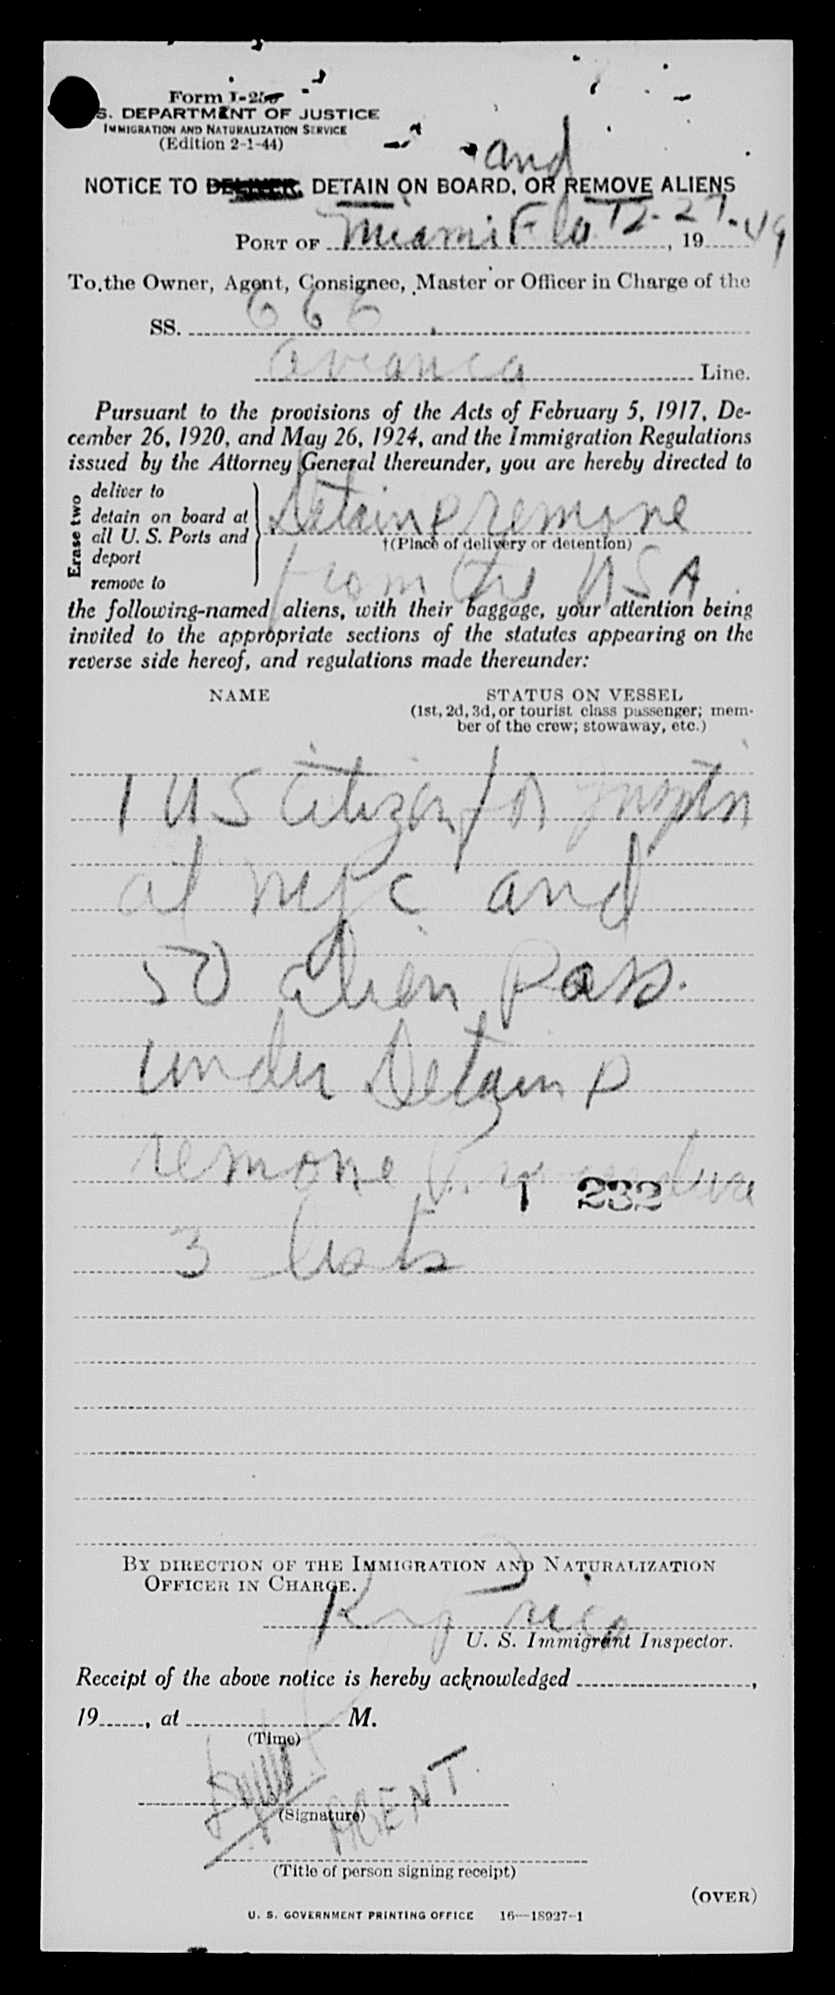 Form I-259
S. DEPARTMENT OF JUSTICE
IMMIGRATION AND NATURALIZATION SERVICE
(Edition 2-1-44)
and
NOTICE TO DELIVER, DETAIN ON BOARD, OR REMOVE ALIENS
PORT OF Miami Fla 12-27-, 19 49
To the Owner, Agent, Consignee, Master or Officer in Charge of the
SS. 666
Avianca Line.
Pursuant to the provisions of the Acts of February 5, 1917, De-
cember 26, 1920, and May 26, 1924, and the Immigration Regulations
issued by the Attorney General thereunder, you are hereby directed to
Erase two
deliver to
detain on board at
all U. S. Ports and
deport
remove to
Detain & remove
†(Place of delivery or detention)
from the USA.
the following-named aliens, with their baggage, your attention being
invited to the appropriate sections of the statutes appearing on the
reverse side hereof, and regulations made thereunder:
NAME STATUS ON VESSEL
(1st, 2d, 3d, or tourist class passenger; mem-
ber of the crew; stowaway, etc.)
1 US Citizen for Insptn
at NYC and
50 alien Pass.
under Detain &
remove
1 232
3 lists
BY DIRECTION OF THE IMMIGRATION AND NATURALIZATION
OFFICER IN CHARGE.
U. S. Immigrant Inspector.
Receipt of the above notice is hereby acknowledged ,
19 , at M.
(Time)
AGENT.
(Signature)
(Title of person signing receipt)
(OVER)
U. S. GOVERNMENT PRINTING OFFICE 16—18927-1